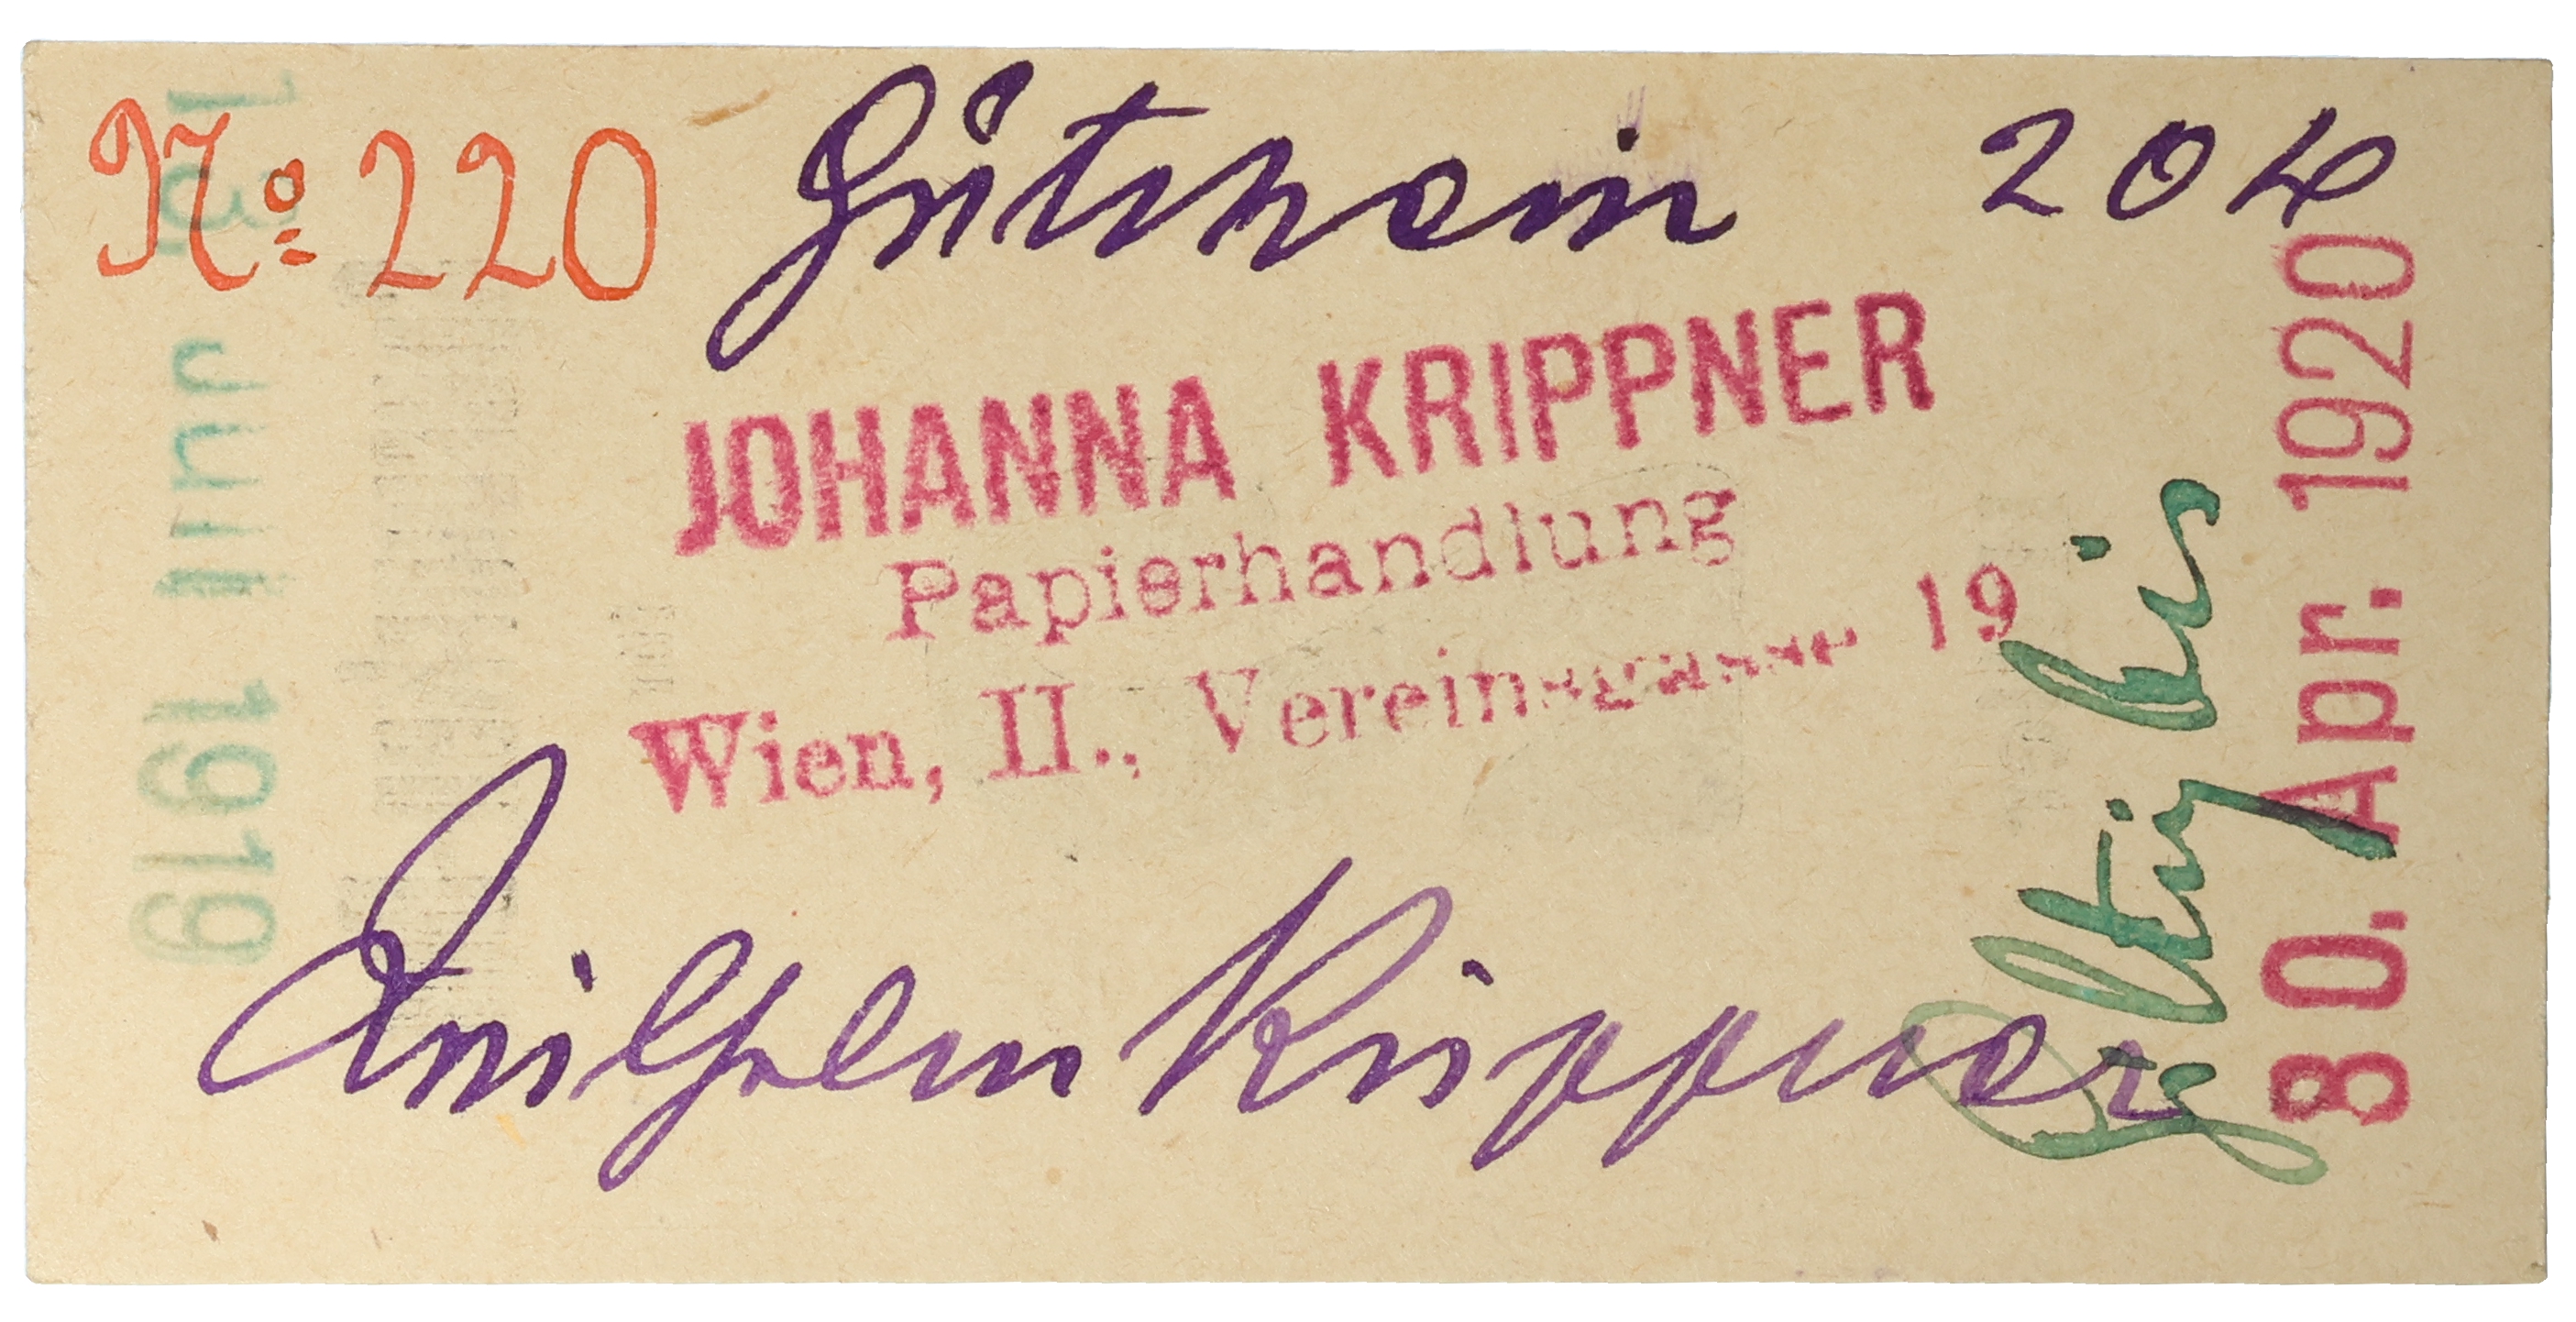 No 220
Gutschein 20 h
13. Juli 1919
JOHANNA KRIPPNER
Papierhandlung
Wien, II., Vereinsgasse 19
Giltig bis
30. Apr. 1920
Wilhelm Krippner